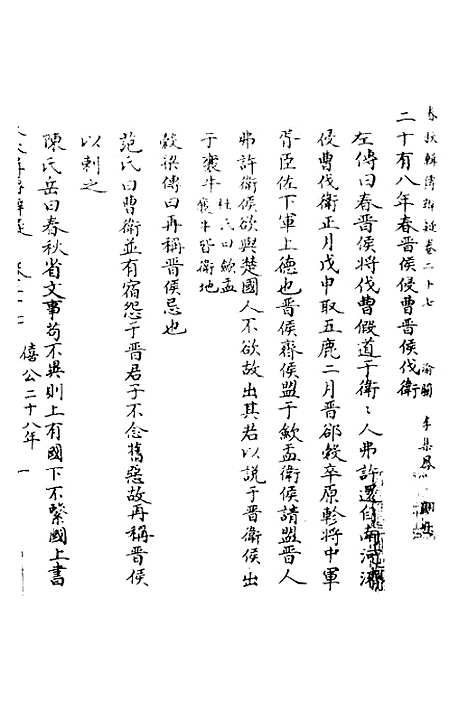 春秋輯傳辨疑卷二十七
渝關 李集鳳
二十有八年春晋侯侵曹晋侯伐衛
左傳曰春晋侯將伐曹假道于衛〻人弗許還自南河濟
侵曹伐衛正月戊申取五鹿二月晋郤縠卒原軫將中軍
胥臣佐下軍上德也晋侯齊侯盟于歛盂衛侯請盟晋人
弗許衛侯欲與楚國人不欲故出其君以說于晋衛侯出
于襄牛 杜氏曰歛盂襄牛皆衛地
穀梁傳曰再稱晋侯忌也
范氏曰曹衛並有宿怨于晋君子不念舊惡故再稱晋侯
以刺之
陳氏岳曰春秋省文事苟不異則上有國下不繫國上書
僖公二十八年 一